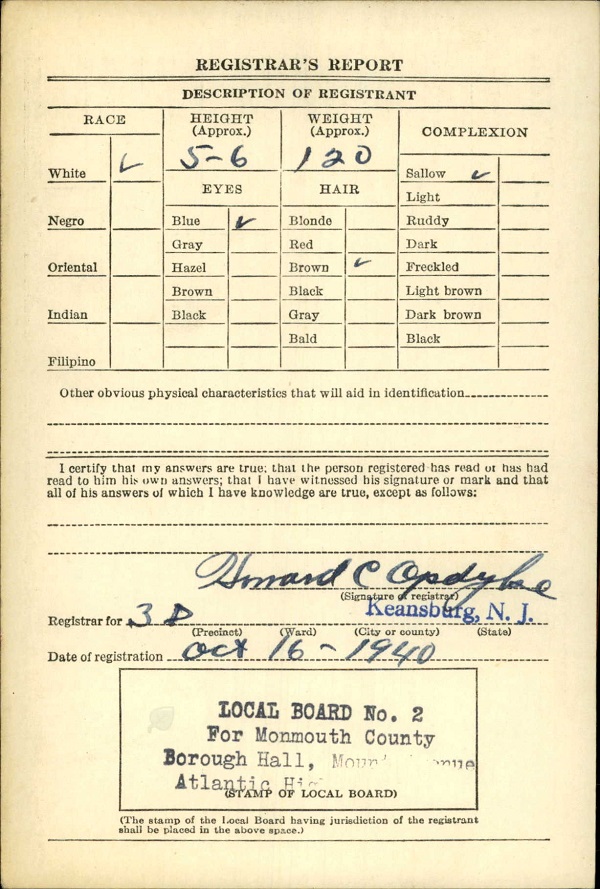 REGISTRAR'S REPORT
DESCRIPTION OF REGISTRANT
RACE
HEIGHT (Approx.)
WEIGHT (Approx.)
COMPLEXION
5-6
120
White ✓
Sallow ✓
EYES
HAIR
Light
Negro
Blue ✓
Blonde
Ruddy
Gray
Red
Dark
Oriental
Hazel
Brown ✓
Freckled
Brown
Black
Light brown
Indian
Black
Gray
Dark brown
Bald
Black
Filipino
Other obvious physical characteristics that will aid in identification
I certify that my answers are true; that the person registered has read or has had
read to him his own answers; that I have witnessed his signature or mark and that
all of his answers of which I have knowledge are true, except as follows:
Howard C Opdyke
(Signature of registrar)
Keansburg, N. J.
Registrar for 3 D
(Precinct) (Ward) (City or county) (State)
Date of registration Oct 16 - 1940
LOCAL BOARD No. 2
For Monmouth County
Borough Hall,
Atlantic
(STAMP OF LOCAL BOARD)
(The stamp of the Local Board having jurisdiction of the registrant
shall be placed in the above space.)